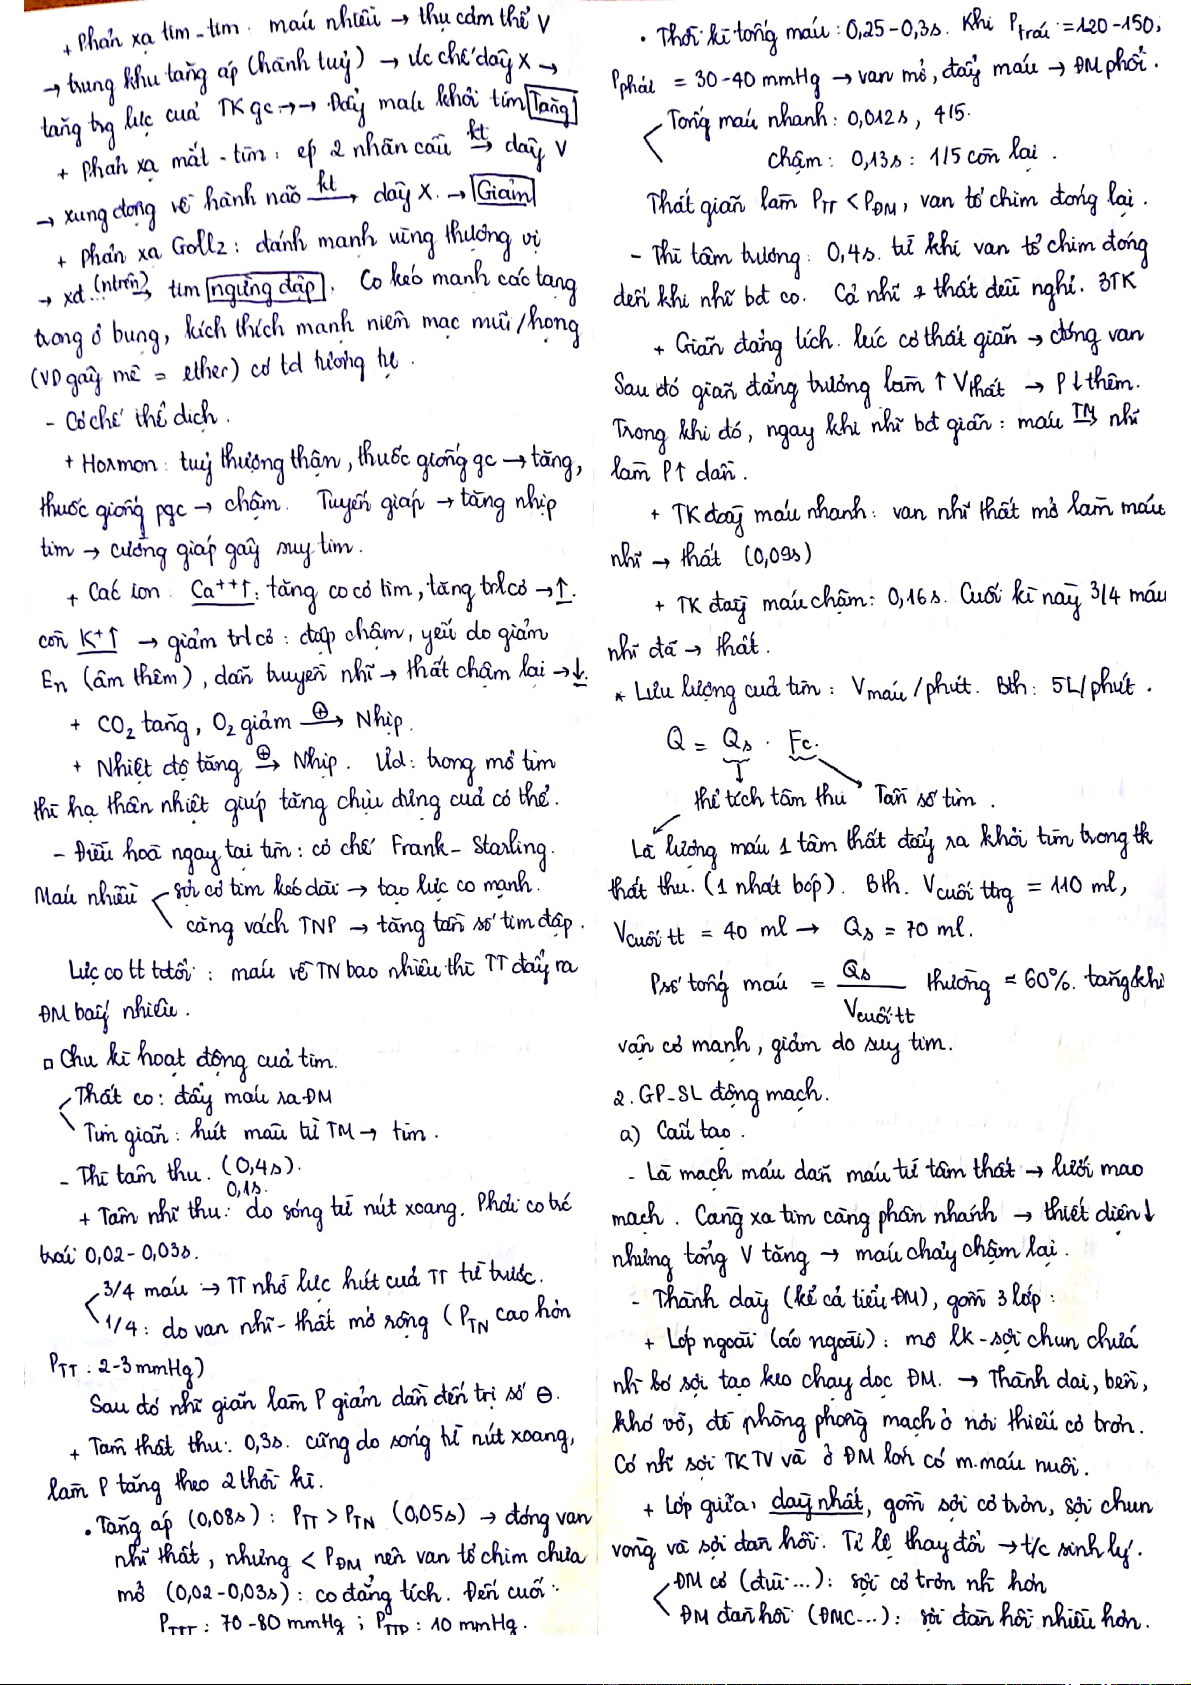 + Phản xạ tim-tim: máu nhiều → thụ cảm thể V
→ trung khu tăng áp (hành tuỷ) → ức chế dây X →
tăng trg lực của TK gc →→ Đẩy máu khỏi tim Tăng
+ Phản xạ mắt-tim: ép 2 nhãn cầu kt→ dây V
→ xung động về hành não kt→ dây X. → Giảm
+ Phản xạ Goltz: đánh mạnh vùng thượng vị
→ xđ ..(ntrên)→ tim ngừng đập. Co kéo mạnh các tạng
trong ổ bụng, kích thích mạnh niêm mạc mũi/họng
(VD gây mê = ether) có td tương tự.
- Cơ chế thể dịch.
+ Hormon: tuỷ thượng thận, thuốc giống gc → tăng,
thuốc giống pgc → chậm. Tuyến giáp → tăng nhịp
tim → cường giáp gây suy tim.
+ Các ion: Ca++↑: tăng co cơ tim, tăng trlcơ → ↑.
còn K+↑ → giảm trlcơ: đập chậm, yếu do giảm
En (âm thêm), dẫn truyền nhĩ → thất chậm lại → ↓.
+ CO2 tăng, O2 giảm ⊕→ Nhịp.
+ Nhiệt độ tăng ⊕→ Nhịp. Ưd: trong mổ tim
thì hạ thân nhiệt giúp tăng chịu đựng của cơ thể.
- Điều hoà ngay tại tim: cơ chế Frank-Starling.
Máu nhiều < sợi cơ tim kéo dài → tạo lực co mạnh.
căng vách TNP → tăng tần số tim đập.
Lực co tt tđổi: máu về TN bao nhiêu thì TT đẩy ra
ĐM bấy nhiêu.
▫ Chu kì hoạt động của tim.
Thất co: đẩy máu ra ĐM
Tim giãn: hút máu từ TM → tim.
- Thì tâm thu. (0,4s).
+ Tâm nhĩ thu: 0,1s. do sóng từ nút xoang. Phải co trc
trái 0,02-0,03s.
3/4 máu → TT nhờ lực hút của TT từ trước.
1/4: do van nhĩ-thất mở rộng (PTN cao hơn
PTT: 2-3mmHg)
Sau đó nhĩ giãn làm P giảm dần đến trị số ⊖.
+ Tâm thất thu: 0,3s. cũng do sóng từ nút xoang,
làm P tăng theo 2 thời kì.
• Tăng áp (0,08s): PTT > PTN (0,05s) → đóng van
nhĩ thất, nhưng < PĐM nên van tổ chim chưa
mở (0,02-0,03s): co đẳng tích. Đến cuối:
PTTT: 70-80 mmHg; PTTP: 10 mmHg.
• Thời kì tống máu: 0,25-0,3s. Khi Ptrái = 120-150,
Pphải = 30-40 mmHg → van mở, đẩy máu → ĐM phổi.
Tống máu nhanh: 0,012s, 4/5.
chậm: 0,13s: 1/5 còn lại.
Thất giãn làm PTT < PĐM, van tổ chim đóng lại.
- Thì tâm trương: 0,4s. từ khi van tổ chim đóng
đến khi nhĩ bđ co. Cả nhĩ & thất đều nghỉ. 3TK
+ Giãn đẳng tích. lúc cơ thất giãn → đóng van
Sau đó giãn đẳng trương làm ↑ Vthất → P↓ thêm.
Trong khi đó, ngay khi nhĩ bđ giãn: máu TM→ nhĩ
làm P↑ dần.
+ TK đầy máu nhanh: van nhĩ thất mở làm máu
nhĩ → thất (0,09s)
+ TK đầy máu chậm: 0,16s. Cuối kì này 3/4 máu
nhĩ đã → thất.
* Lưu lượng của tim: Vmáu/phút. Bth: 5L/phút.
Q = Qs . Fc.
thể tích tâm thu Tần số tim.
Là lượng máu 1 tâm thất đẩy ra khỏi tim trong tk
thất thu. (1 nhát bóp). Bth. Vcuối ttrg = 110 ml,
Vcuối tt = 40 ml → Qs = 70 ml.
Psố tống máu = Qs / Vcuối tt thường = 60%. tăng khi
vận cơ mạnh, giảm do suy tim.
2. GP-SL động mạch.
a) Cấu tạo.
- Là mạch máu dẫn máu từ tâm thất → lưới mao
mạch. Càng xa tim càng phân nhánh → thiết diện↓
nhưng tổng V tăng → máu chảy chậm lại.
- Thành dày (kể cả tiểu ĐM), gồm 3 lớp:
+ Lớp ngoài (áo ngoài): mô lk-sợi chun chứa
nh bó sợi tạo keo chạy dọc ĐM. → Thành dai, bền,
khó vỡ, đề phòng phồng mạch ở nơi thiếu cơ trơn.
Có nh sợi TKTV và ở ĐM lớn có m.máu nuôi.
+ Lớp giữa: dày nhất, gồm sợi cơ trơn, sợi chun
vòng và sợi đàn hồi. Tỉ lệ thay đổi → t/c sinh lý.
ĐM cơ (đùi...): sợi cơ trơn nh hơn
ĐM đàn hồi (ĐMC...): sợi đàn hồi nhiều hơn.